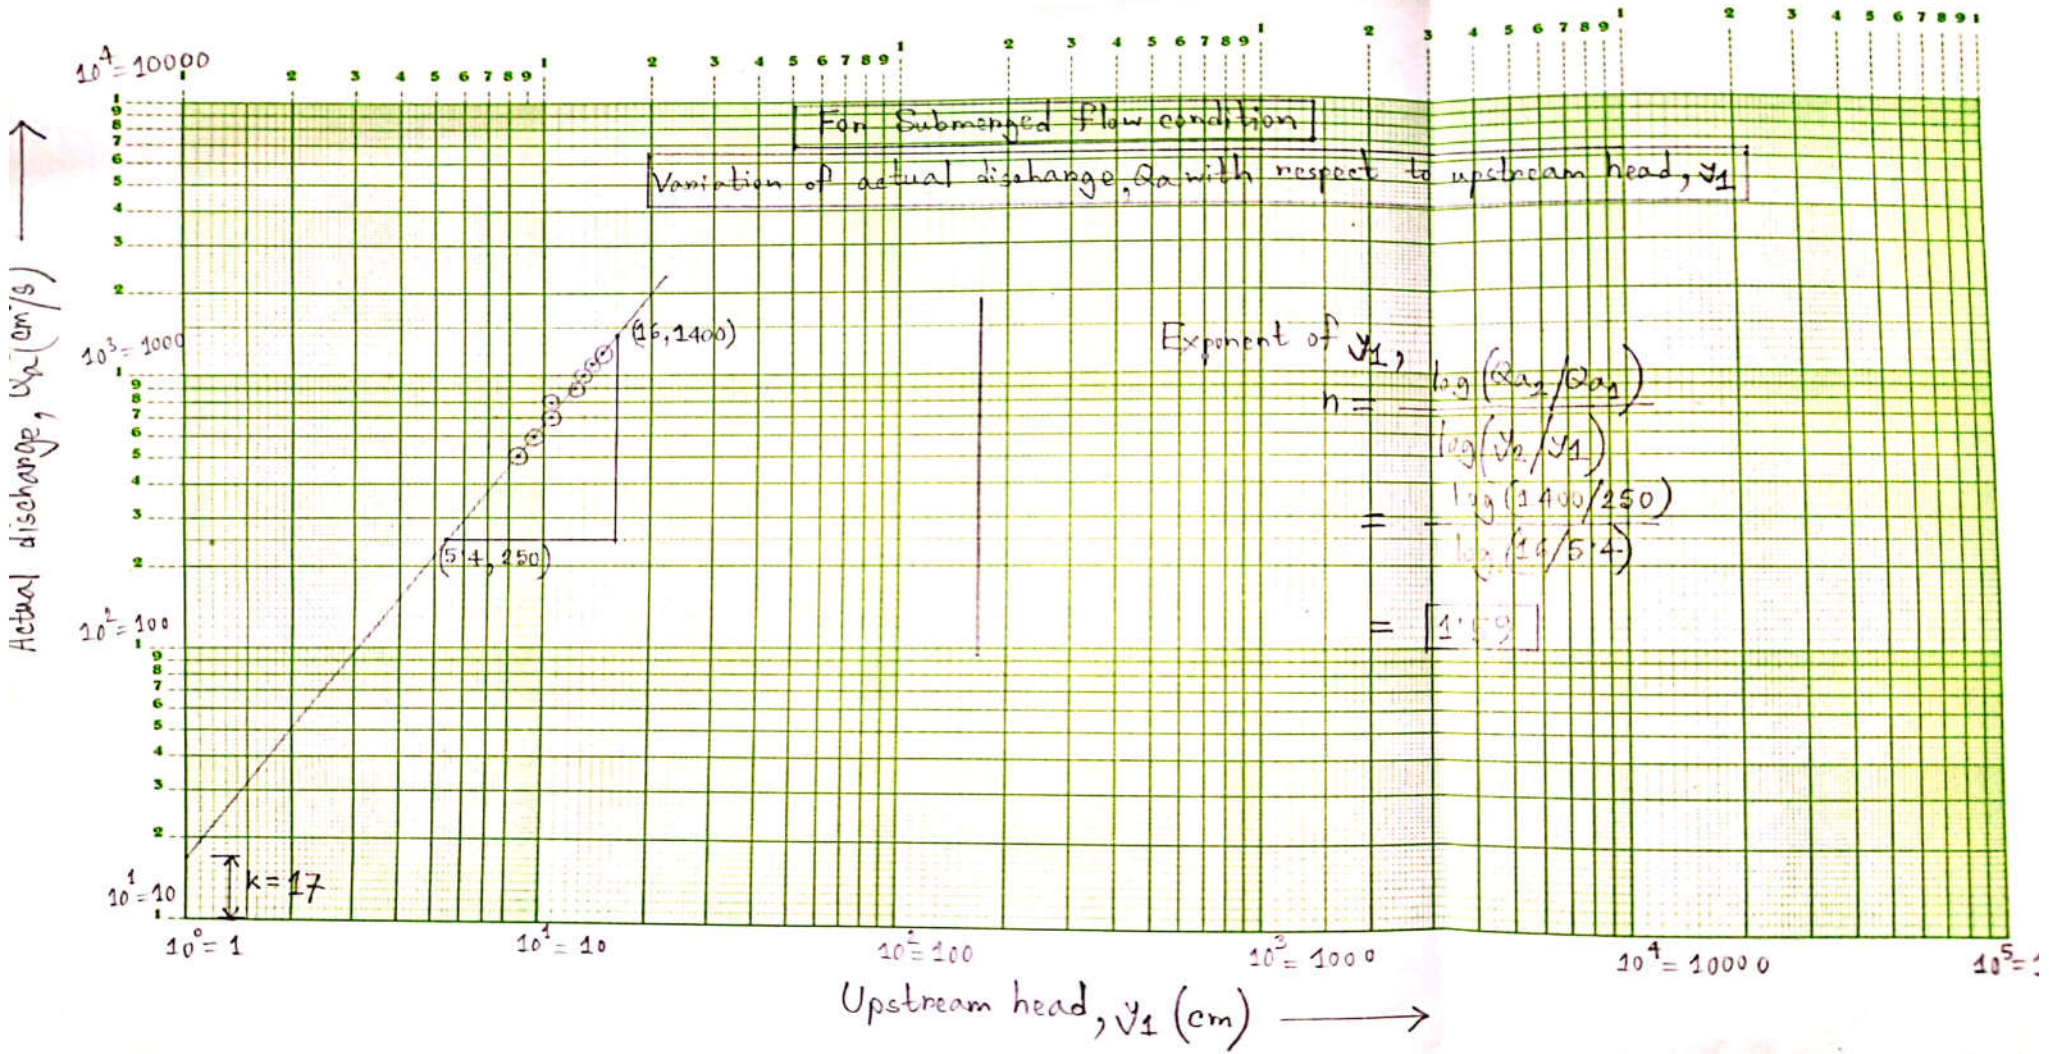 1 2 3 4 5 6 7 8 9 1 2 3 4 5 6 7 8 9 1 2 3 4 5 6 7 8 9 1 2 3 4 5 6 7 8 9 1 2 3 4 5 6 7 8 9 1
10⁴=10000
For Submerged flow condition
Variation of actual discharge, Qa with respect to upstream head, y1
1
9
8
7
6
5
4
3
2
10³=1000
1
9
8
7
6
5
4
3
2
10²=100
1
9
8
7
6
5
4
3
2
10¹=10
1
Actual discharge, Qa (cm³/s)
(16,1400)
(5.4, 250)
K=17
Exponent of y1,
n = log(Qa2/Qa1)
log(y2/y1)
= log(1400/250)
log(16/5.4)
= 1.59
10⁰=1 10¹=10 10²=100 10³=1000 10⁴=10000
Upstream head, y1 (cm)